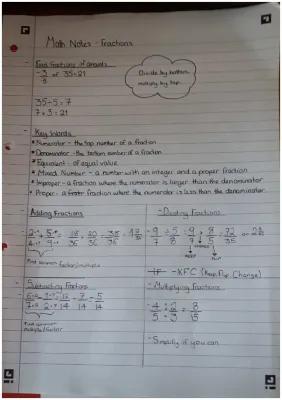 Math Notes - Fractions
- Find fractions of amounts
- 3/5 of 35 = 21
Divide by bottom,
multiply by top.
35 ÷ 5 = 7
7 × 3 = 21
- Key Words
• Numerator - the top number of a fraction
• Denominator - the bottom number of a fraction
• Equivalent - of equal value
• Mixed Number - a number with an integer and a proper fraction
• Improper - a fraction where the numerator is larger than the denominator
• Proper - a fraction where the numerator is less than the denominator.
- Adding Fractions
18/36 + 20/36 = 38/36
Find common factor/multiple
- Subtracting Fractions
12/14 - 7/14 = 5/14
Find common
multiple/factor
- Dividing Fractions
- 9/7 ÷ 5/8 = 9/7 × 8/5 = 72/35 or
KEEP
CHANGE
FLIP
- KFC (Keep, Flip, Change)
- Multiplying Fractions
- 4/5 × 2/3 = 8/15
- Simplify if you can